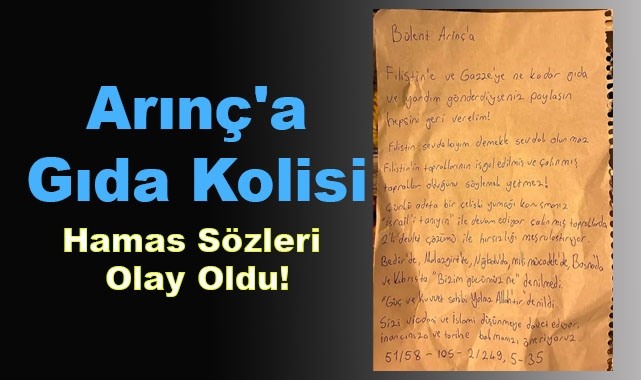 Arınç'a
Gıda Kolisi
Hamas Sözleri
Olay Oldu!
Bülent Arınç'a
Filistin'e ve Gazze'ye ne kadar gıda
ve yardım gönderdiyseniz paylaşın
hepsini geri verelim!
Filistin sevdalıyım demekle sevdalı olunmaz
Filistin'in topraklarının işgal edilmiş ve çalınmış
topraklar olduğunu söylemek yetmez!
Çünkü adeta bir çelişki yumağı konuşmanız
"İsrail'i tanıyın" ile devam ediyor çalınmış topraklarda
2'li devlet çözümü ile hırsızlığı meşrulaştırıyor.
Bedir'de, Malazgirt'te, Niğbolu'da, milli mücadele'de, Bosna'da
ve Kıbrıs'ta "Bizim gücümüz ne" denilmedi.
"Güç ve Kuvvet sahibi Yalnız Allah'tır" denildi.
Sizi vicdani ve İslami düşünmeye davet ediyor,
inancınıza ve tarihe bakmanızı öneriyoruz.
51/58 - 105 - 2/249, 5-35